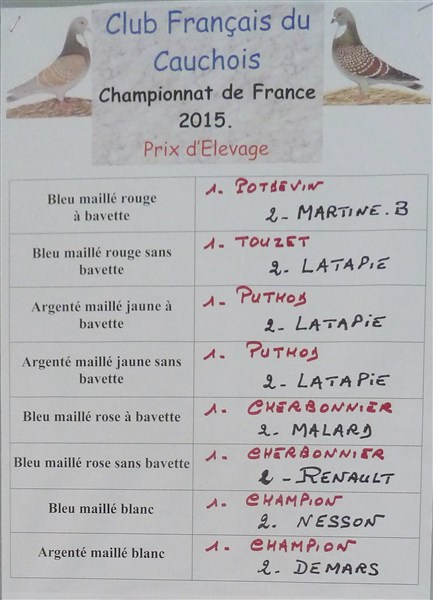 Club Français du
Cauchois
Championnat de France
2015.
Prix d'Elevage
Bleu maillé rouge
à bavette
1. POTDEVIN
2- MARTINE.B
Bleu maillé rouge sans
bavette
1- TOUZET
2. LATAPIE
Argenté maillé jaune à
bavette
1. PUTHOD
2- LATAPIE
Argenté maillé jaune sans
bavette
1. PUTHOD
2- LATAPIE
Bleu maillé rose à bavette
1- CHERBONNIER
2- MALARD
Bleu maillé rose sans bavette
1- CHERBONNIER
2- RENAULT
Bleu maillé blanc
1- CHAMPION
2. NESSON
Argenté maillé blanc
1- CHAMPION
2. DEMARS